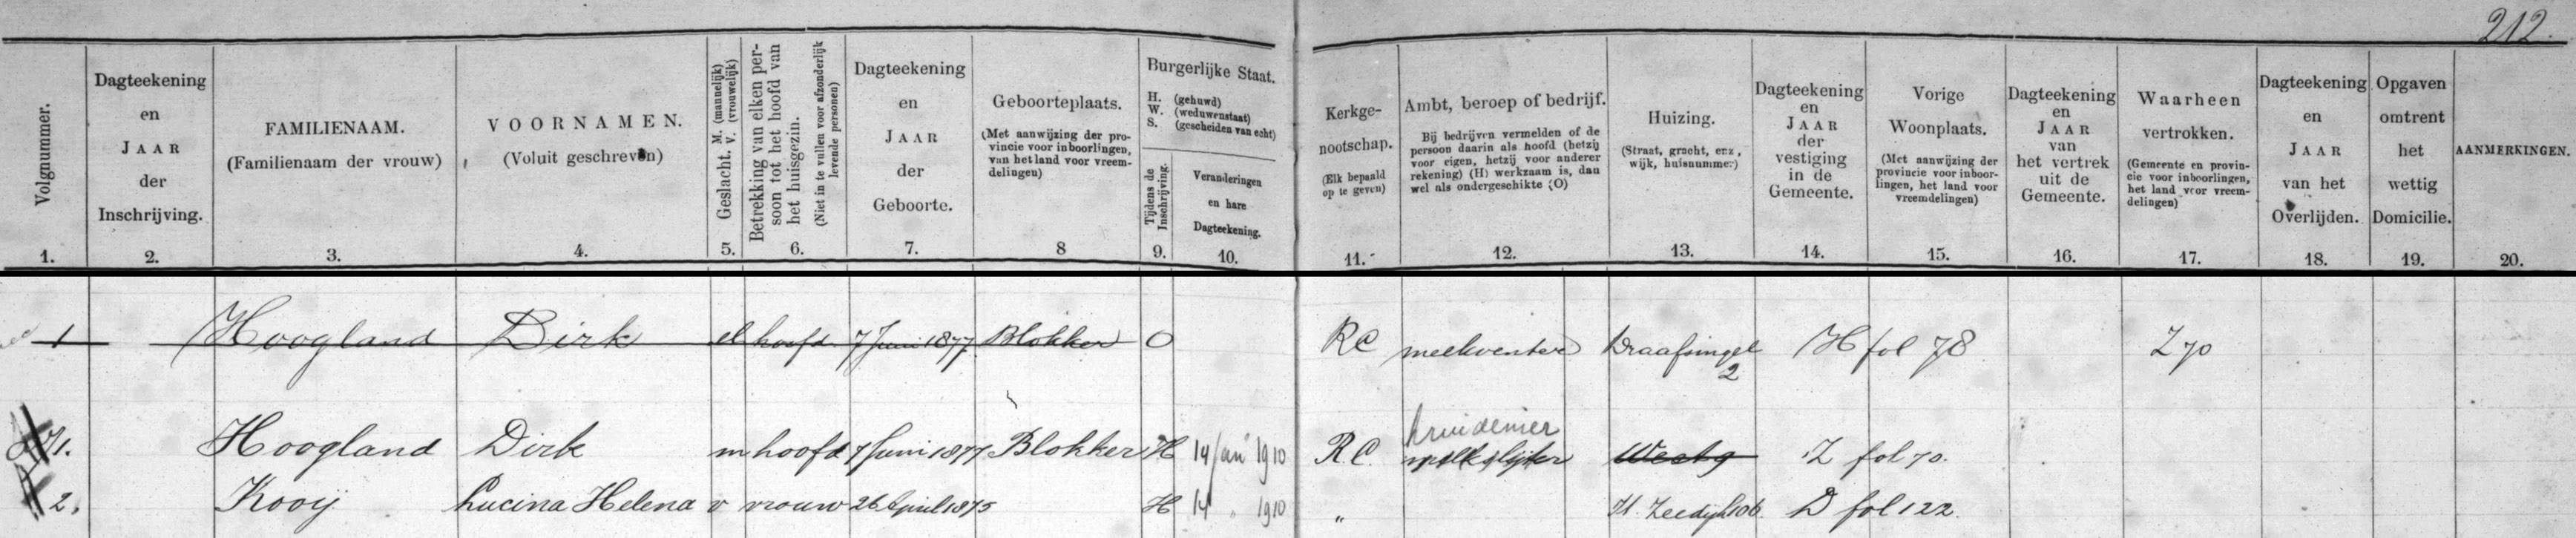 212.
Volgnummer.
1.
Dagteekening
en
JAAR
der
Inschrijving.
2.
FAMILIENAAM.
(Familienaam der vrouw)
3.
VOORNAMEN.
(Voluit geschreven)
4.
Geslacht. M. (mannelijk) V. (vrouwelijk)
5.
Betrekking van elken per-
soon tot het hoofd van
het huisgezin.
(Niet in te vullen voor afzonderlijk
levende personen)
6.
Dagteekening
en
JAAR
der
Geboorte.
7.
Geboorteplaats.
(Met aanwijzing der pro-
vincie voor inboorlingen,
van het land voor vreem-
delingen)
8
Burgerlijke Staat.
H. (gehuwd)
W. (weduwenstaat)
S. (gescheiden van echt)
Tijdens de
Inschrijving.
9.
Veranderingen
en hare
Dagteekening.
10.
Kerkge-
nootschap.
(Elk bepaald
op te geven)
11.
Ambt, beroep of bedrijf.
Bij bedrijven vermelden of de
persoon daarin als hoofd (hetzij
voor eigen, hetzij voor anderer
rekening) (H) werkzaam is, dan
wel als ondergeschikte (O)
12.
Huizing.
(Straat, gracht, enz.,
wijk, huisnummer)
13.
Dagteekening
en
JAAR
der
vestiging
in de
Gemeente.
14.
Vorige
Woonplaats.
(Met aanwijzing der
provincie voor inboor-
lingen, het land voor
vreemdelingen)
15.
Dagteekening
en
JAAR
van
het vertrek
uit de
Gemeente.
16.
Waarheen
vertrokken.
(Gemeente en provin-
cie voor inboorlingen,
het land voor vreem-
delingen)
17.
Dagteekening
en
JAAR
van het
Overlijden.
18.
Opgaven
omtrent
het
wettig
Domicilie.
19.
AANMERKINGEN.
20.
1 Hoogland Dirk hoofd 7 Juni 1877 Blokker O RC Draafsingel H fol 78 Z 70
2
kruidenier
1. Hoogland Dirk m hoofd 7 Juni 1877 Blokker H 14 Jan 1910 R.C. melkslijter Westg Z fol 70.
2. Kooij Lucina Helena v vrouw 26 April 1875 H 14 " 1910 " Kl. Zeedijk 106 D fol 122.